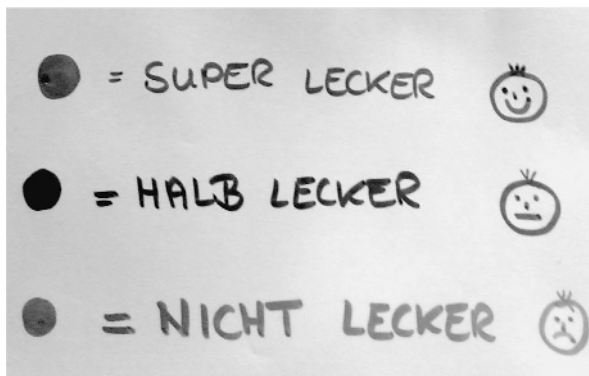 = SUPER LECKER
= HALB LECKER
= NICHT LECKER